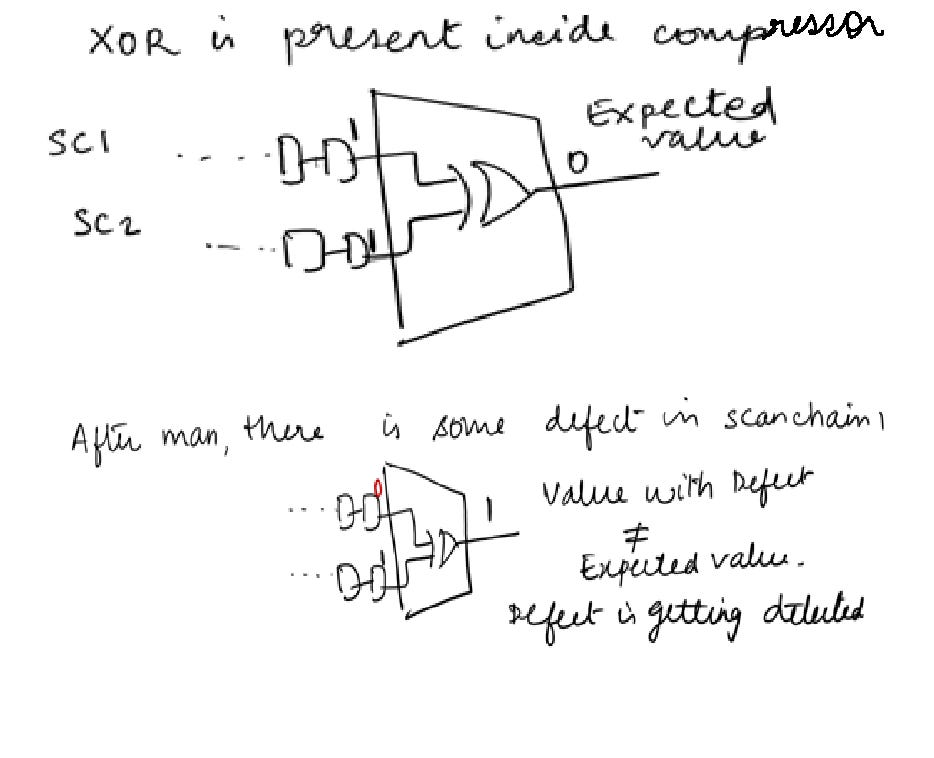 XOR is present inside compressor
Expected
value
SC1
1
0
SC2
1
After man, there is some defect in scanchain1
0
1
Value with Defect
≠
1
Expected value.
Defect is getting detected